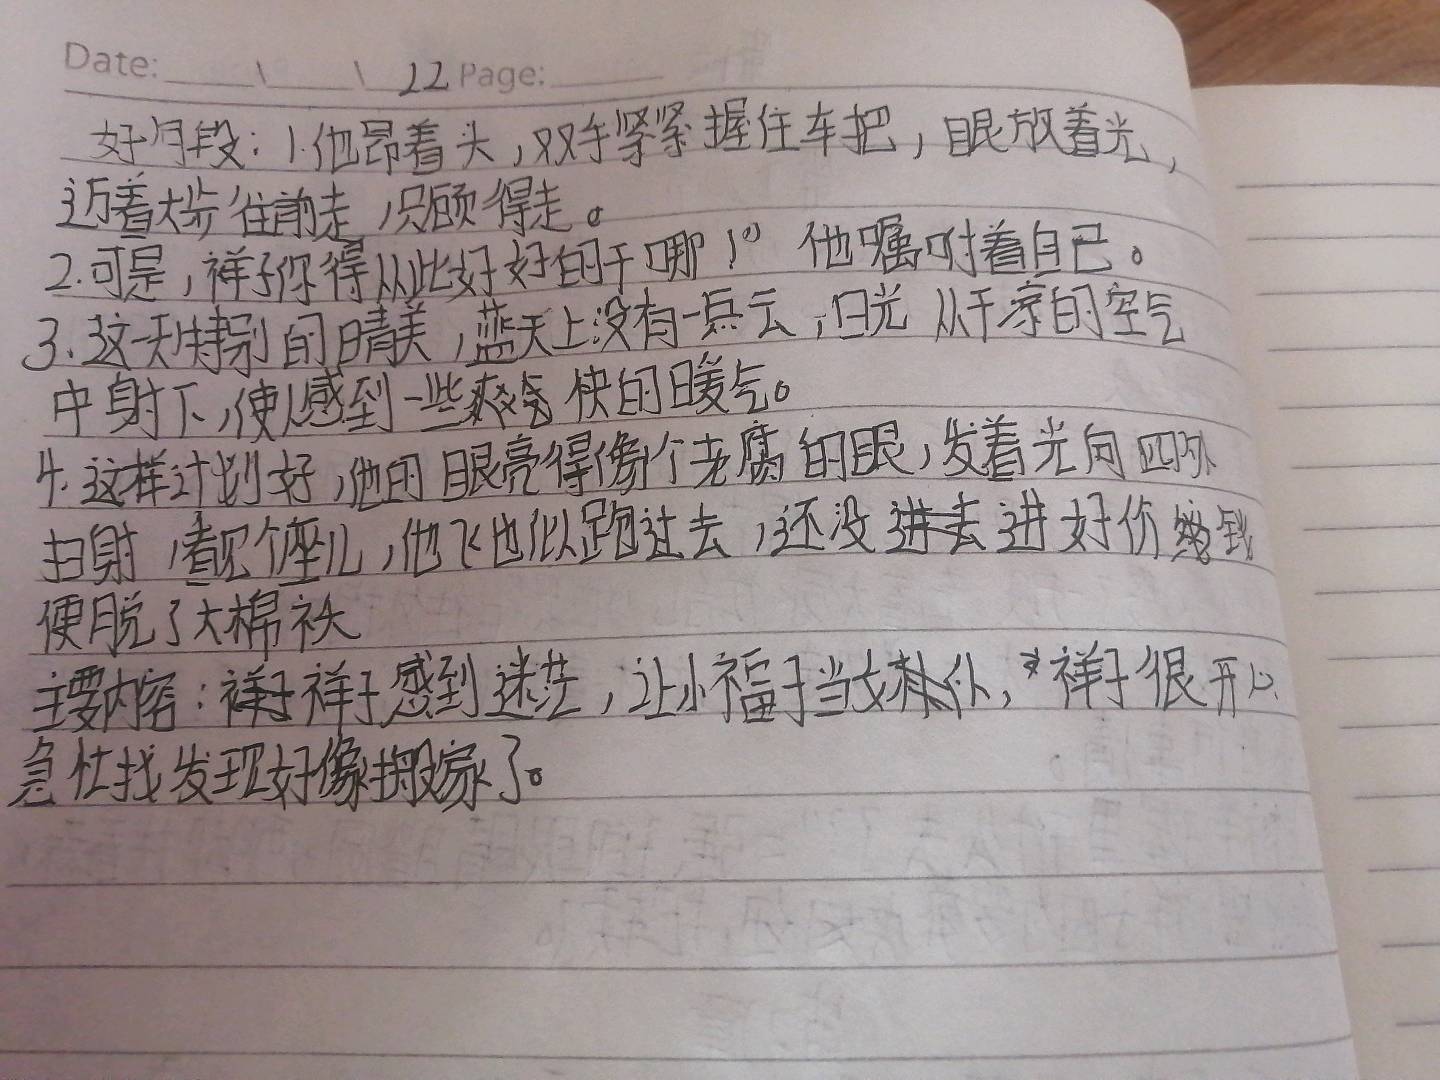 Date: \ \ 22 Page:
好片段：1.他昂着头，双手紧紧握住车把，眼放着光，
迈着大步往前走，只顾得走。
2.可是，祥子你得从此好好的干哪！” 他嘱咐着自己。
3.这一天特别的晴美，蓝天上没有一点云，日光从干凉的空气
中射下，使人感到一些爽快的暖气。
4.这样计划好，他的眼亮得像个老鹰的眼，发着光向四外
扫射，看见个座儿，他飞也似跑过去，还没进好价钱
便脱了大棉袄
主要内容：祥子感到迷茫，让小福子当女仆，祥子很开心
急忙找发现好像搬家了。